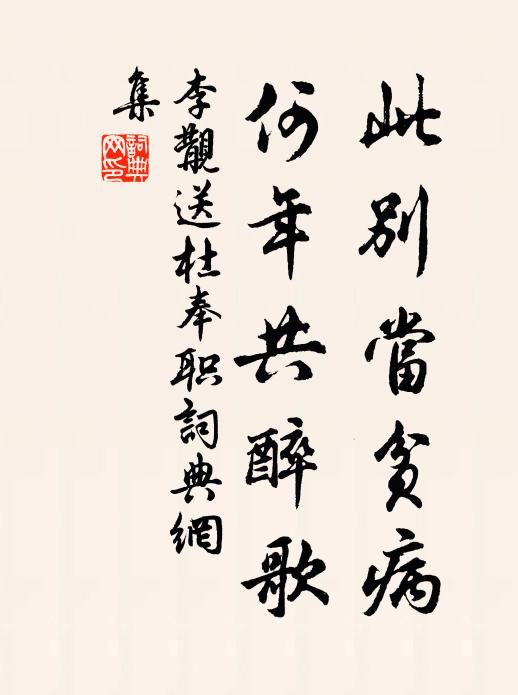 此別當貧病
何年共醉歌
李覯送杜奉职詞典網
集
詞典網印